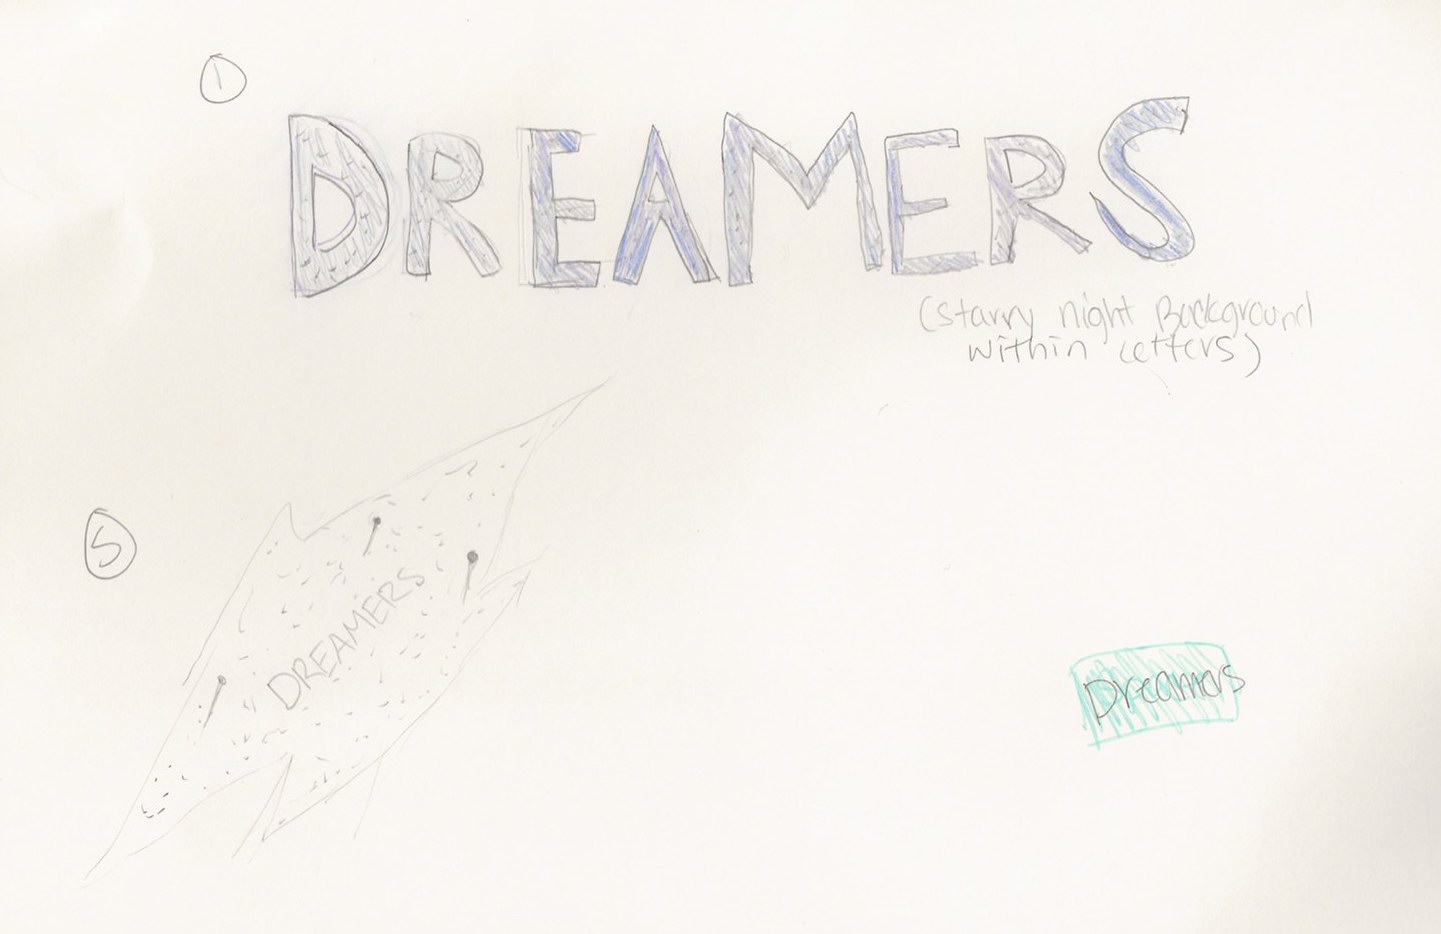 1
DREAMERS
(Starry night Background
within Letters)
5
DREAMERS
Dreamers